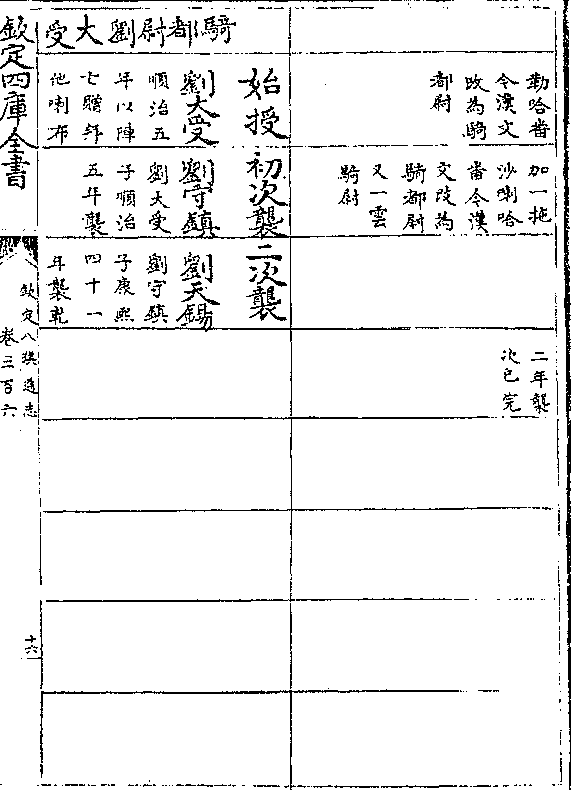 勒哈畨
今漢文
改為騎
都尉
加一拖
沙喇哈
畨今漢
文改為
騎都尉
又一雲
騎尉
二年襲
次已完
騎都尉劉大受
始授
劉大受
順治五
年以陣
亡贈拜
他喇布
初次襲
劉守鎮
劉大受
子順治
五年襲
二次襲
劉天錫
劉守鎮
子康熙
四十一
年襲乾
欽定四庫全書
欽定八旗通志
卷三百六
十六